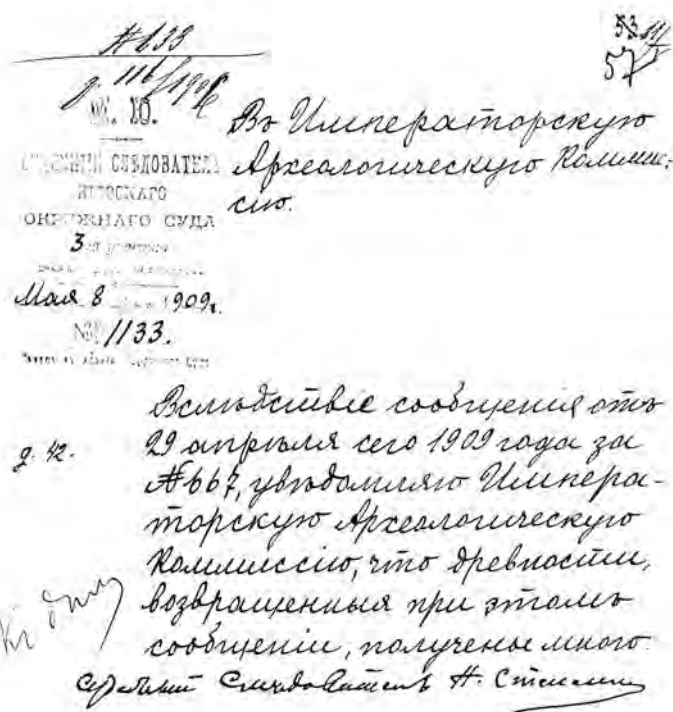 № 633
д. 116/1906
53
57
М. Ю.
СУДЕБНЫЙ СЛѢДОВАТЕЛЬ
ОКРУЖНАГО СУДА
3 го участка
Мая 8 1909 г.
№ 1133.
Въ Императорскую
Археологическую Коммис-
сію.
Вслѣдствіе сообщенія отъ
29 апрѣля сего 1909 года за
№ 667, увѣдомляю Импера-
торскую Археологическую
Коммиссію, что древности,
возвращенныя при этомъ
сообщеніи, получены мною.
Судебный Слѣдователь Н.
д. 42.
Къ дѣлу